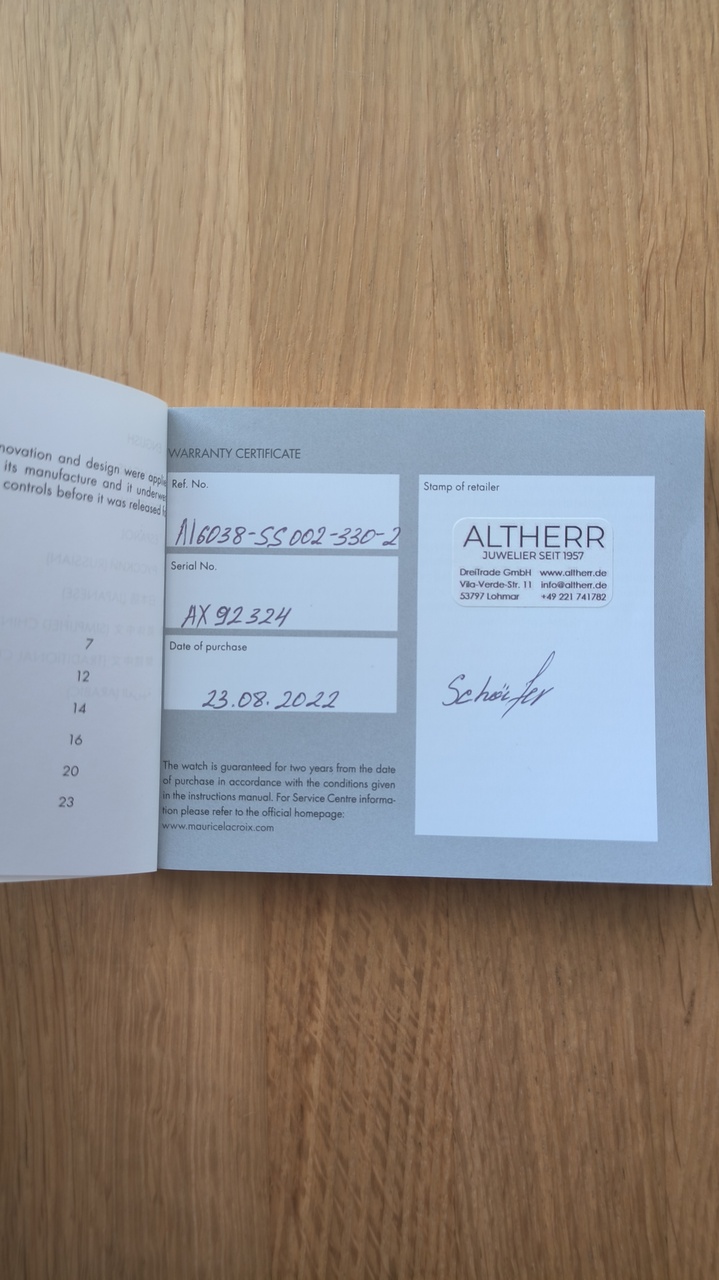 novation and design were
its manufacture and it
controls before it was released
7
12
14
16
20
23
WARRANTY CERTIFICATE
Ref. No.
AI6038-SS002-330-2
Serial No.
AX92324
Date of purchase
23.08.2022
The watch is guaranteed for two years from the date
of purchase in accordance with the conditions given
in the instructions manual. For Service Centre informa-
tion please refer to the official homepage:
www.mauricelacroix.com
Stamp of retailer
ALTHERR
JUWELIER SEIT 1957
DreiTrade GmbH www.altherr.de
Vila-Verde-Str. 11 info@altherr.de
53797 Lohmar +49 221 741782
Schäfer